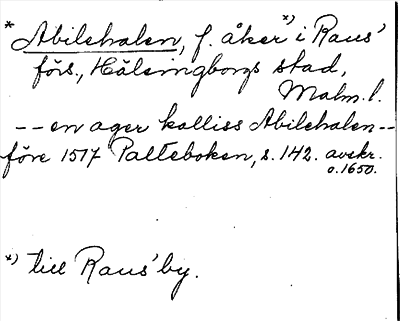 * Abilehalen, f. åker *) i Raus'
förs., Hälsingborgs stad,
Malm. l.
-- en ager kalliss Abilehalen --
före 1517 Palteboken, s. 142. avskr.
o. 1650.
*) till Raus' by.